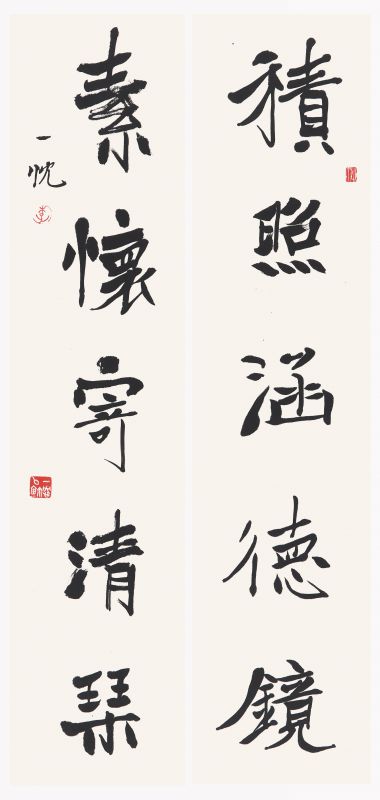 積照涵德鏡
素懷寄清琴
一忱